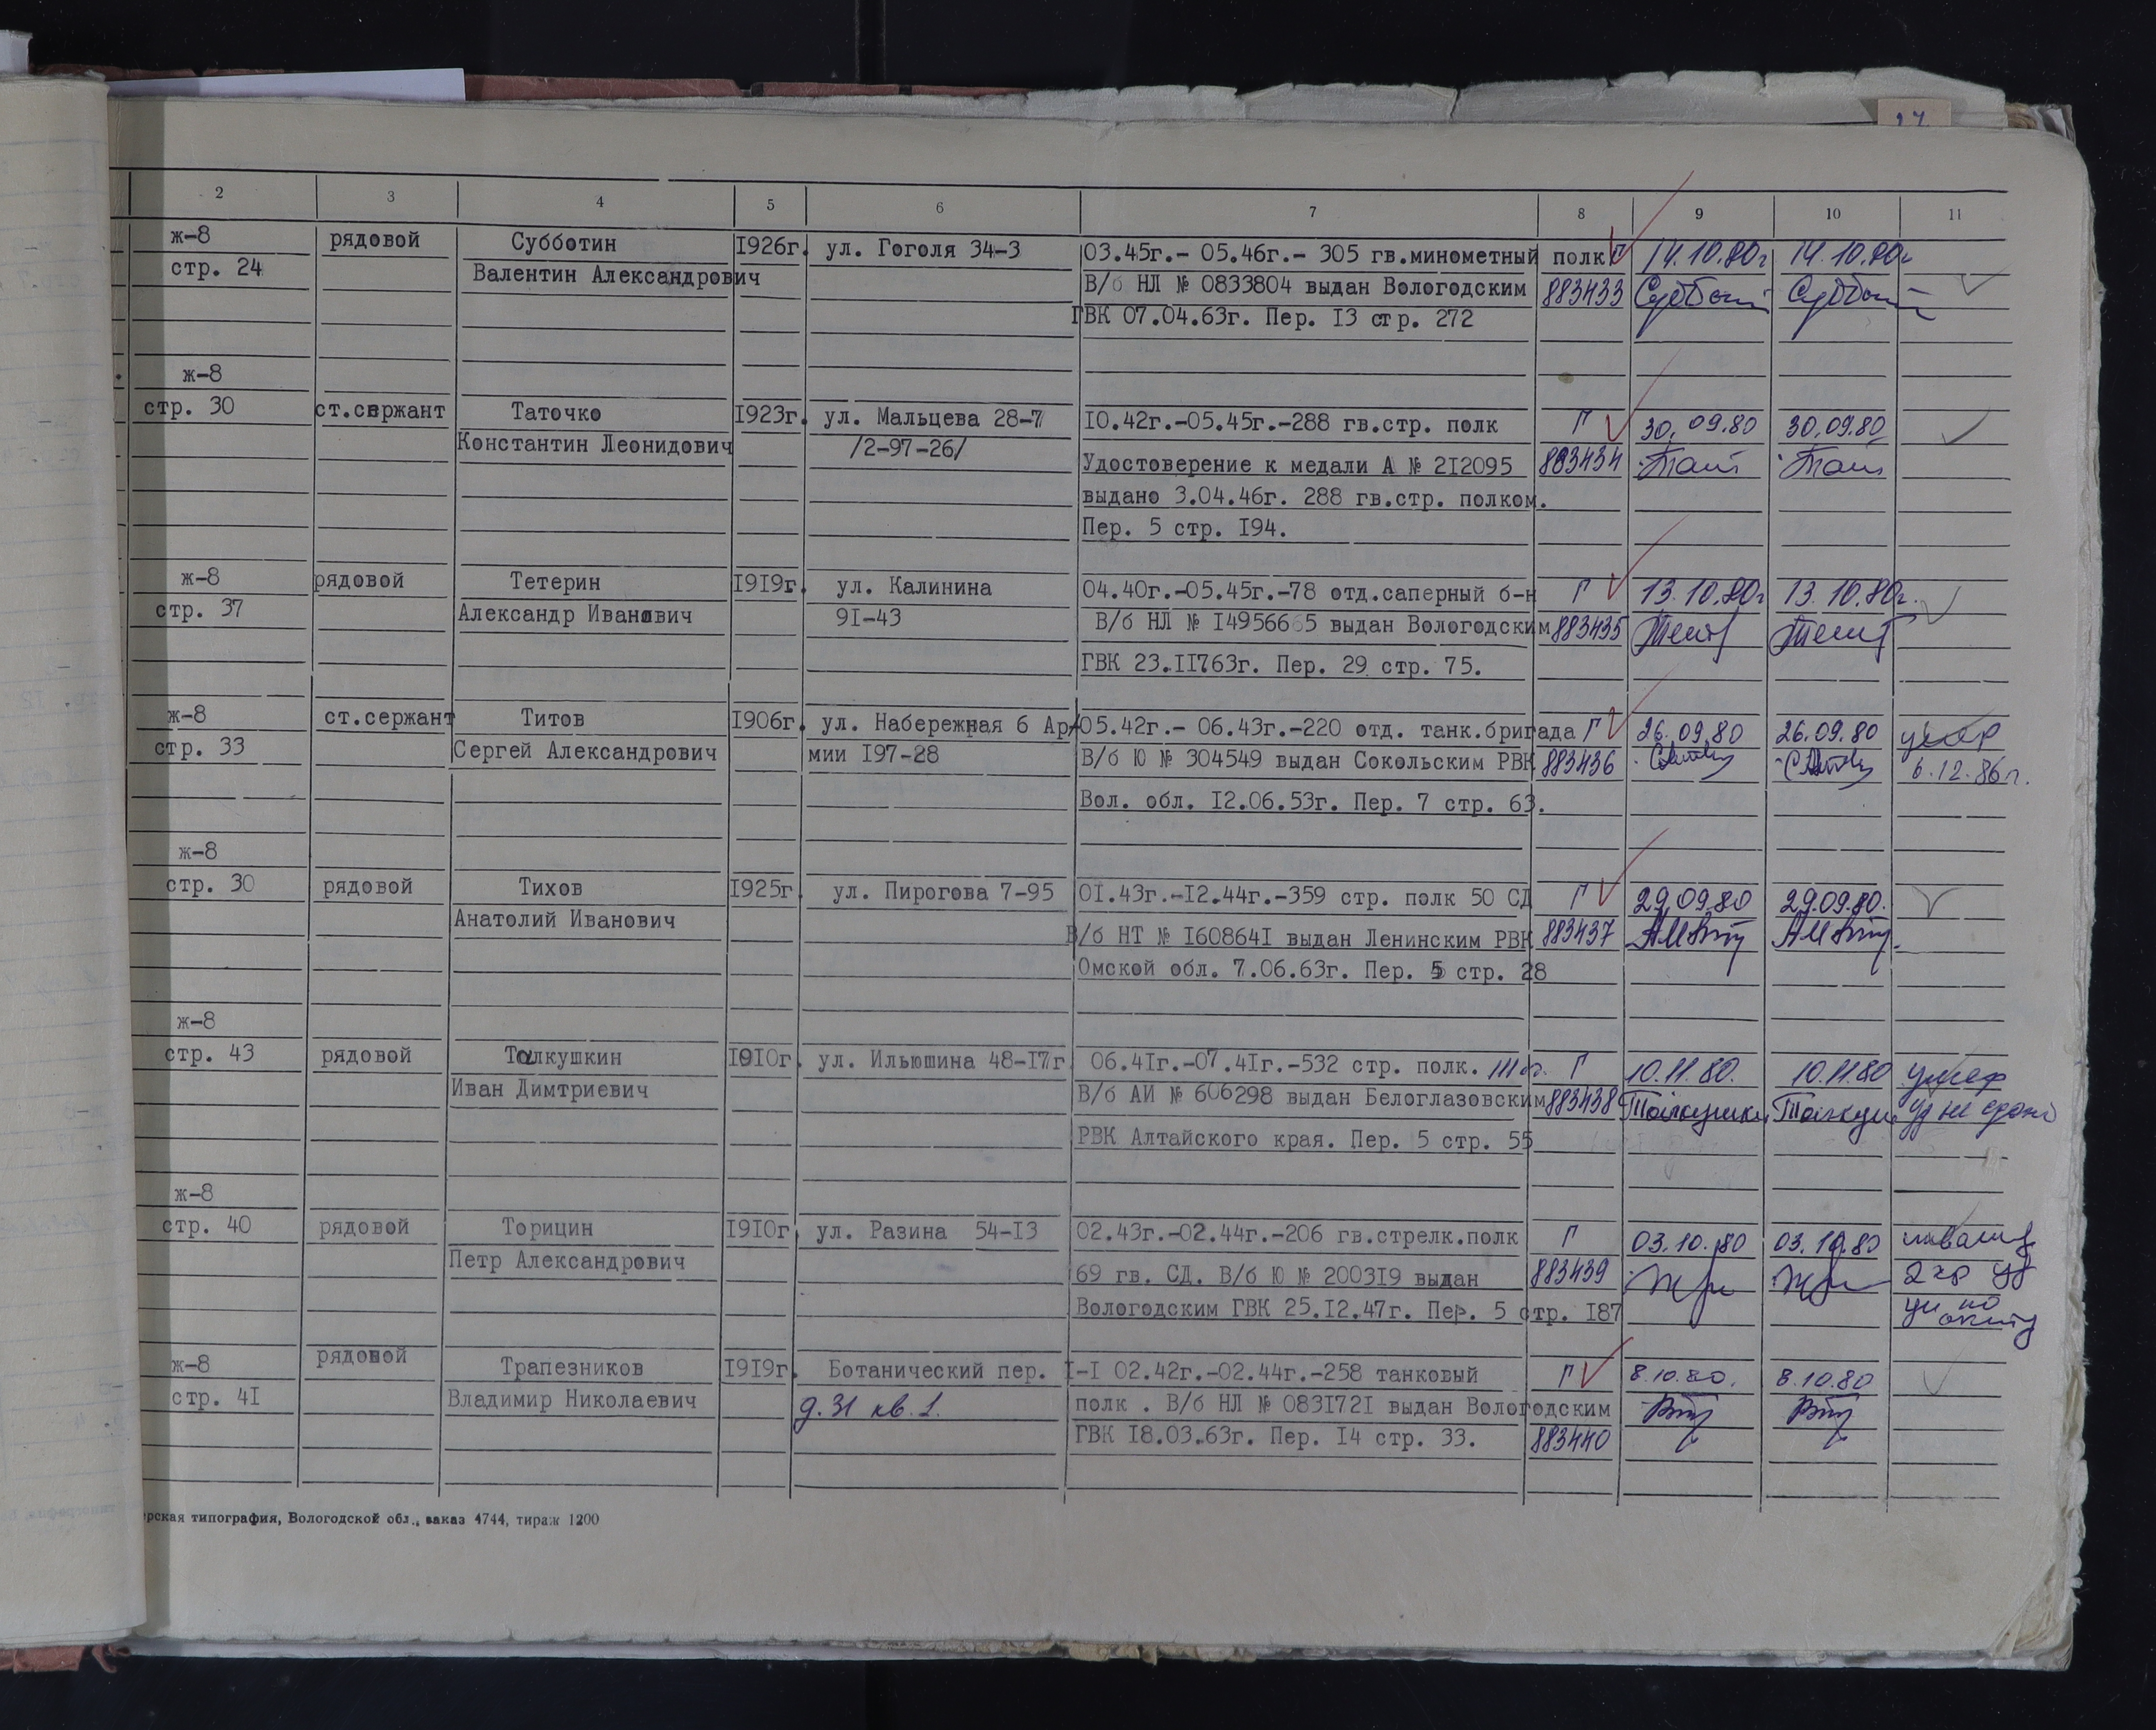 2 3 4 5 6 7 8 9 10 11
ж-8 рядовой Субботин 1926г. ул. Гоголя 34-3 03.45г.- 05.46г.- 305 гв.минометный полк Г 14.10.80г 14.10.80г
стр. 24 Валентин Александрович В/б НЛ № 0833804 выдан Вологодским 883433
ГВК 07.04.63г. Пер. 13 стр. 272
ж-8
стр. 30 ст.сержант Таточко 1923г. ул. Мальцева 28-7 10.42г.-05.45г.-288 гв.стр. полк Г 30.09.80 30.09.80
Константин Леонидович /2-97-26/ Удостоверение к медали А № 212095 883434
выдано 3.04.46г. 288 гв.стр. полком.
Пер. 5 стр. 194.
ж-8 рядовой Тетерин 1919г. ул. Калинина 04.40г.-05.45г.-78 отд.саперный б-н Г 13.10.80г 13.10.80г.
стр. 37 Александр Иванович 91-43 В/б НЛ № 1495665 выдан Вологодским 883435
ГВК 23.11763г. Пер. 29 стр. 75.
ж-8 ст.сержант Титов 1906г. ул. Набережная 6 Ар- 05.42г.- 06.43г.-220 отд. танк.бригада Г 26.09.80 26.09.80 умер
стр. 33 Сергей Александрович мии 197-28 В/б Ю № 304549 выдан Сокольским РВК 883436 6.12.86г.
Вол. обл. 12.06.53г. Пер. 7 стр. 63.
ж-8
стр. 30 рядовой Тихов 1925г. ул. Пирогова 7-95 01.43г.-12.44г.-359 стр. полк 50 СД Г 29.09.80 29.09.80.
Анатолий Иванович В/б НТ № 1608641 выдан Ленинским РВК 883437
Омской обл. 7.06.63г. Пер. 5 стр. 28
ж-8
стр. 43 рядовой Талкушкин 1910г. ул. Ильюшина 48-17г 06.41г.-07.41г.-532 стр. полк. Г 10.11.80. 10.11.80 умер
Иван Димтриевич В/б АИ № 606298 выдан Белоглазовским 883438 Талкушкин уд не
РВК Алтайского края. Пер. 5 стр. 55
ж-8
стр. 40 рядовой Торицин 1910г. ул. Разина 54-13 02.43г.-02.44г.-206 гв.стрелк.полк Г 03.10.80 03.10.80 инвалид
Петр Александрович 69 гв. СД. В/б Ю № 200319 выдан 883439 2 гр
Вологодским ГВК 25.12.47г. Пер. 5 стр. 187
ж-8 рядовой Трапезников 1919г. Ботанический пер. 1-1 02.42г.-02.44г.-258 танковый Г 8.10.80. 8.10.80
стр. 41 Владимир Николаевич д.31 кв.1. полк . В/б НЛ № 0831721 выдан Вологодским
ГВК 18.03.63г. Пер. 14 стр. 33. 883440
рская типография, Вологодской обл., заказ 4744, тираж 1200